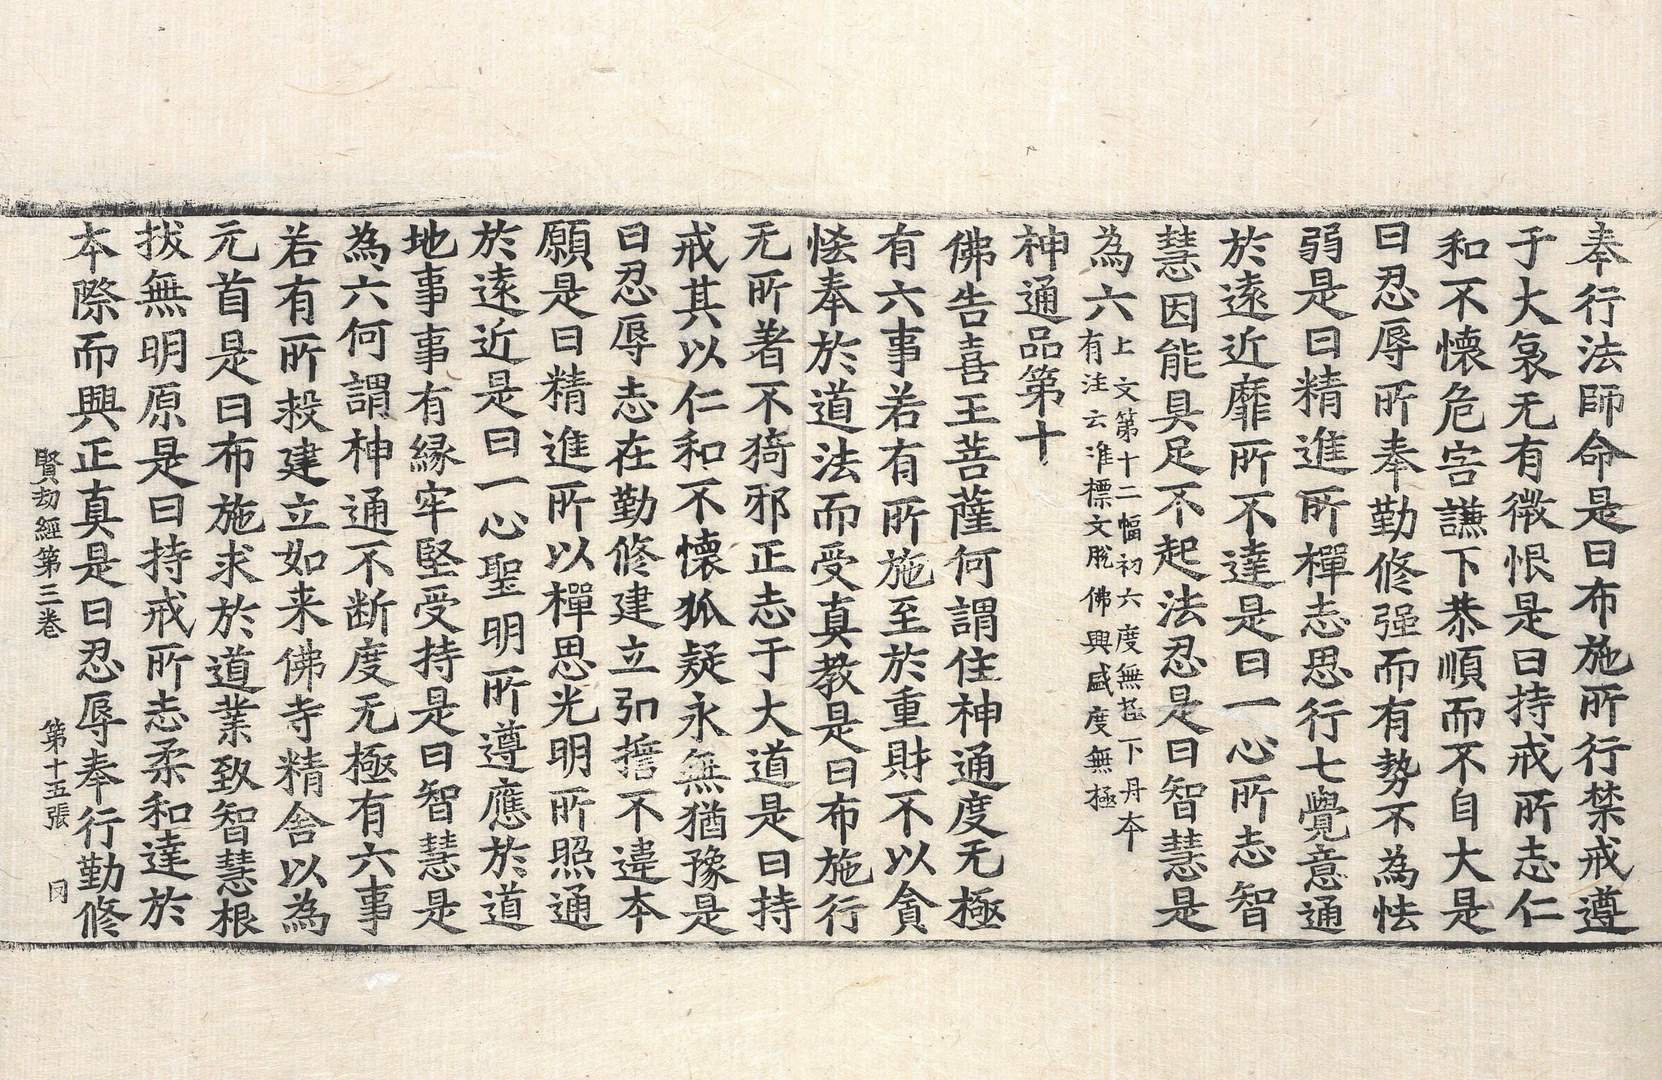 奉行法師命是曰布施所行禁戒遵
于大哀无有微恨是曰持戒所志仁
和不懷危害謙下恭順而不自大是
曰忍辱所奉勤修强而有勢不為怯
弱是曰精進所禪志思行七覺意通
於遠近靡所不達是曰一心所志智
慧因能具足不起法忍是曰智慧是
為六
上文第十二幅初六度無極下丹本
有注云准標文脫佛興盛度無極
神通品第十
佛告喜王菩薩何謂住神通度无極
有六事若有所施至於重財不以貪
悋奉於道法而受真教是曰布施行
无所著不猗邪正志于大道是曰持
戒其以仁和不懷狐疑永無猶豫是
曰忍辱志在勤修建立弘誓不違本
願是曰精進所以禪思光明所照通
於遠近是曰一心聖明所遵應於道
地事事有緣牢堅受持是曰智慧是
為六何謂神通不断度无極有六事
若有所投建立如来佛寺精舍以為
元首是曰布施求於道業致智慧根
拔無明原是曰持戒所志柔和達於
本際而興正真是曰忍辱奉行勤修
賢劫經第三卷 第十五張 冈